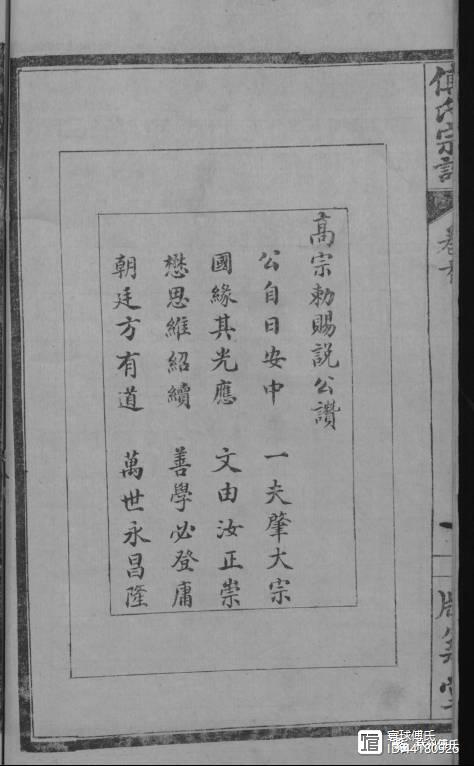 傅氏宗譜
卷首
一
版築堂
高宗勅賜説公讚
公自日安中 一夫肇大宗
國緣其光應 文由汝正崇
懋思維紹續 善學必登庸
朝廷方有道 萬世永昌隆
寰球傅氏